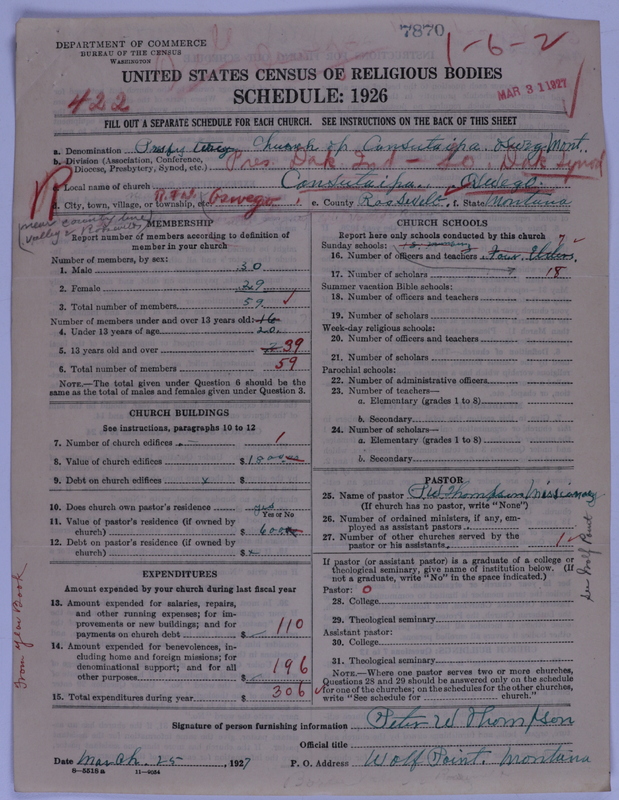 7870
1-6-2
DEPARTMENT OF COMMERCE
BUREAU OF THE CENSUS
WASHINGTON
MAR 31 1927
UNITED STATES CENSUS OF RELIGIOUS BODIES
422
SCHEDULE: 1926
FILL OUT A SEPARATE SCHEDULE FOR EACH CHURCH. SEE INSTRUCTIONS ON THE BACK OF THIS SHEET
a. Denomination Church of Oswego Mont.
b. Division (Association, Conference, Diocese, Presbytery, Synod, etc.) Pres. Dak Ind - So Dak Synod
c. Local name of church Oswego
d. City, town, village, or township, etc. Oswego e. County f. State Montana
new county line Valley &
MEMBERSHIP
Report number of members according to definition of member in your church
Number of members, by sex:
1. Male 30
2. Female 29
3. Total number of members 59
Number of members under and over 13 years old: 16
4. Under 13 years of age 20
5. 13 years old and over 39
6. Total number of members 59
NOTE.—The total given under Question 6 should be the same as the total of males and females given under Question 3.
CHURCH BUILDINGS
See instructions, paragraphs 10 to 12
7. Number of church edifices 1
8. Value of church edifices $
9. Debt on church edifices x $
10. Does church own pastor's residence yes
Yes or No
11. Value of pastor's residence (if owned by church) $
12. Debt on pastor's residence (if owned by church) $ x
EXPENDITURES
Amount expended by your church during last fiscal year
13. Amount expended for salaries, repairs, and other running expenses; for improvements or new buildings; and for payments on church debt $ 110
14. Amount expended for benevolences, including home and foreign missions; for denominational support; and for all other purposes $ 196
15. Total expenditures during year $ 306
From Year Book
CHURCH SCHOOLS
Report here only schools conducted by this church
Sunday schools:
16. Number of officers and teachers Four
17. Number of scholars 18
Summer vacation Bible schools:
18. Number of officers and teachers
19. Number of scholars
Week-day religious schools:
20. Number of officers and teachers
21. Number of scholars
Parochial schools:
22. Number of administrative officers
23. Number of teachers—
a. Elementary (grades 1 to 8)
b. Secondary
24. Number of scholars—
a. Elementary (grades 1 to 8)
b. Secondary
PASTOR
25. Name of pastor P W Thompson Missionary
(If church has no pastor, write "None")
26. Number of ordained ministers, if any, employed as assistant pastors
27. Number of other churches served by the pastor or his assistants 1
See Wolf Point
If pastor (or assistant pastor) is a graduate of a college or theological seminary, give name of institution below. (If not a graduate, write "No" in the space indicated.)
Pastor: O
28. College
29. Theological seminary
Assistant pastor:
30. College
31. Theological seminary
NOTE.—Where one pastor serves two or more churches, Questions 28 and 29 should be answered only on the schedule for one of the churches; on the schedules for the other churches, write "See schedule for church."
Signature of person furnishing information Peter W Thompson
Official title
Date March 25, 1927 P. O. Address Wolf Point, Montana
8-5518 a 11-9054